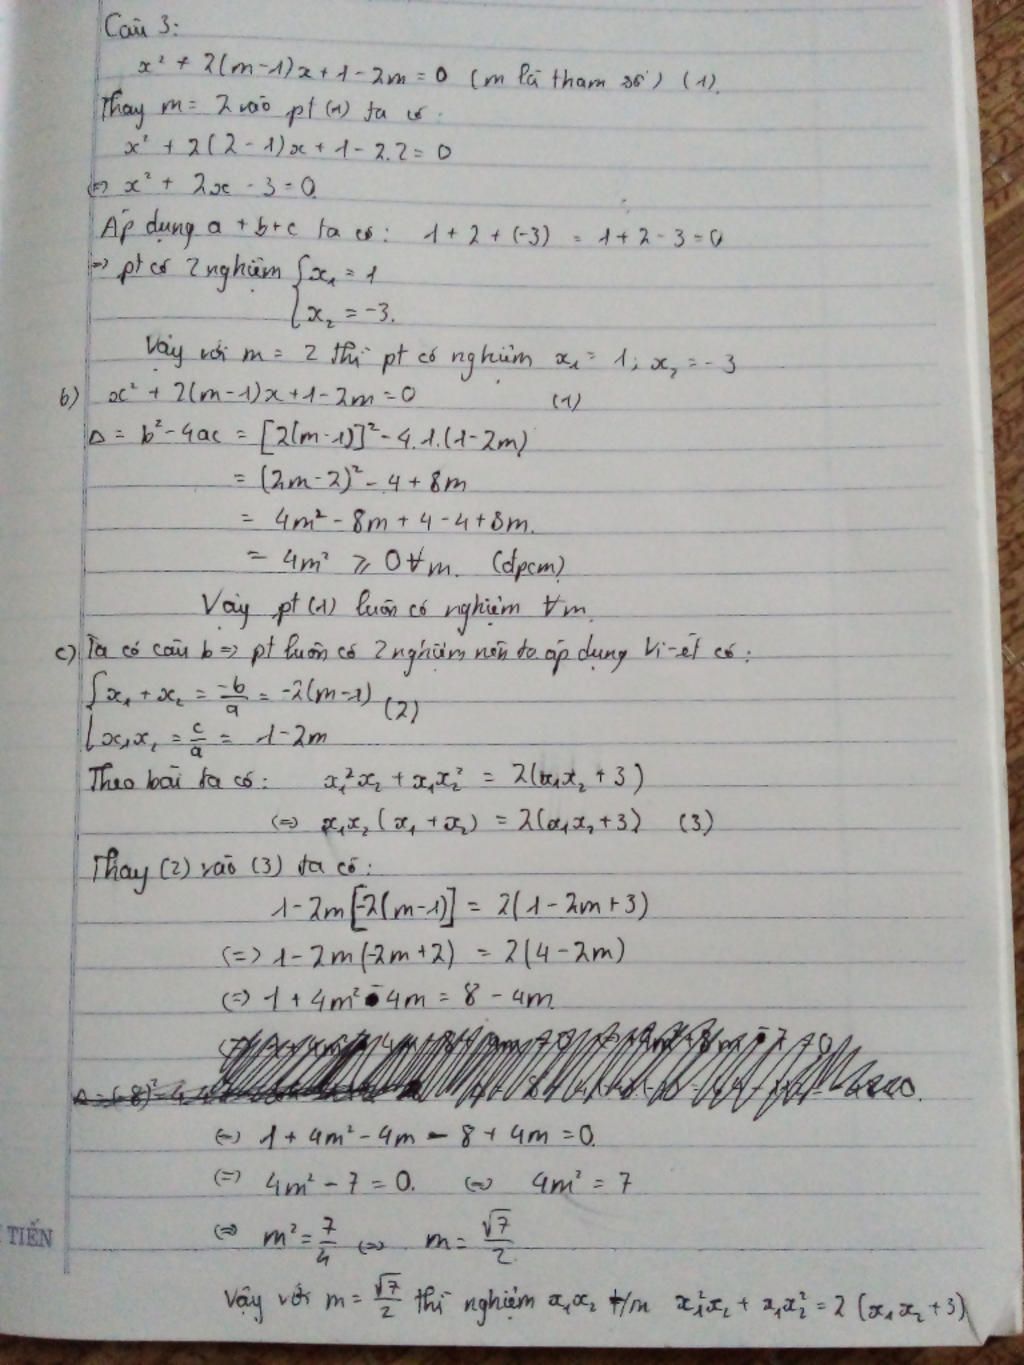 Câu 3:
x² + 2(m-1)x + 1 - 2m = 0 (m là tham số) (1).
Thay m = 2 vào pt (1) ta có:
x² + 2(2-1)x + 1 - 2.2 = 0
⇔ x² + 2x - 3 = 0.
Áp dụng a + b + c ta có: 1 + 2 + (-3) = 1 + 2 - 3 = 0
=> pt có 2 nghiệm { x₁ = 1
x₂ = -3.
Vậy với m = 2 thì pt có nghiệm x₁ = 1; x₂ = -3
b) x² + 2(m-1)x + 1 - 2m = 0 (1)
Δ = b² - 4ac = [2(m-1)]² - 4.1.(1-2m)
= (2m-2)² - 4 + 8m
= 4m² - 8m + 4 - 4 + 8m.
= 4m² ≥ 0 ∀m. (đpcm)
Vậy pt (1) luôn có nghiệm ∀m.
c) Ta có câu b => pt luôn có 2 nghiệm nên ta áp dụng Vi-ét có:
{ x₁ + x₂ = -b/a = -2(m-1) (2)
x₁x₂ = c/a = 1 - 2m
Theo bài ta có: x₁²x₂ + x₁x₂² = 2(x₁x₂ + 3)
(=) x₁x₂(x₁ + x₂) = 2(x₁x₂ + 3) (3)
Thay (2) vào (3) ta có:
1 - 2m[-2(m-1)] = 2(1 - 2m + 3)
(=) 1 - 2m(-2m+2) = 2(4 - 2m)
(=) 1 + 4m² - 4m = 8 - 4m
(=) 1 + 4m² - 4m - 8 + 4m = 0.
(=) 4m² - 7 = 0. (=) 4m² = 7
(=) m² = 7/4 (=) m = √7/2
Vậy với m = √7/2 thì nghiệm x₁x₂ t/m x₁²x₂ + x₁x₂² = 2(x₁x₂ + 3)
TIẾN